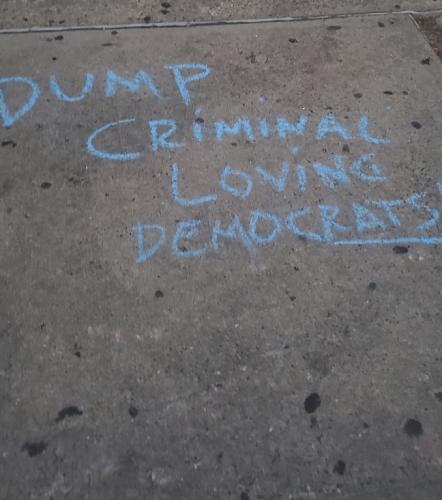 DUMP
CRIMINAL
LOVING
DEMOCRATS!